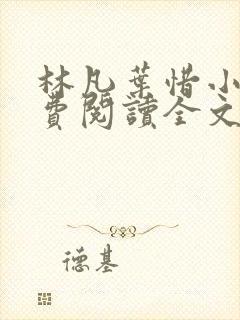 林凡葉惜小
費閱讀全文
德基